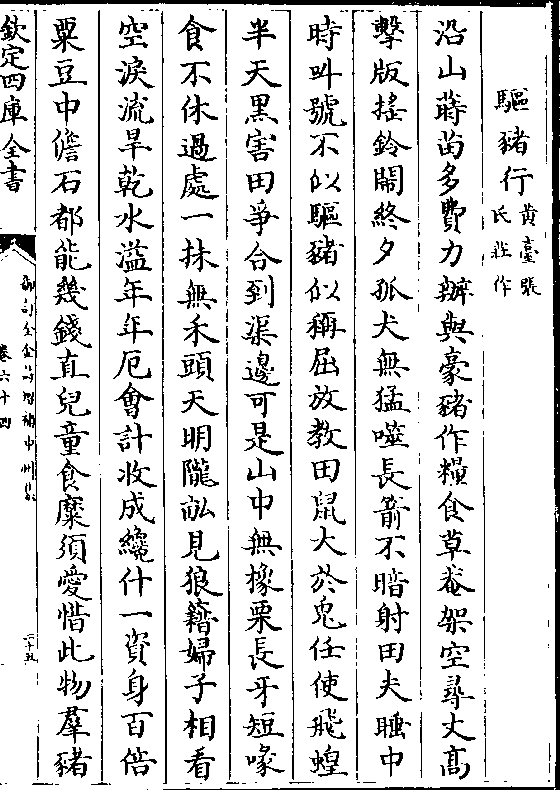 驅豬行黃臺張氏莊作
沿山蒔苗多費力辦與豪豬作糧食草菴架空尋丈髙
擊版搖鈴鬧終夕孤犬無猛噬長箭不暗射田夫睡中
時叫號不似驅豬似稱屈放教田䑕大於兎任使飛蝗
半天黑害田爭合到渠邊可是山中無橡栗長牙短喙
食不休過處一抹無禾頭天明隴畝見狼籍婦子相看
空淚流旱乾水溢年年厄會計收成纔什一資身百倍
粟豆中儋石都能幾錢直兒童食糜須愛惜此物羣豬
欽定四庫全書
御訂全金詩增補中州集
卷六十四